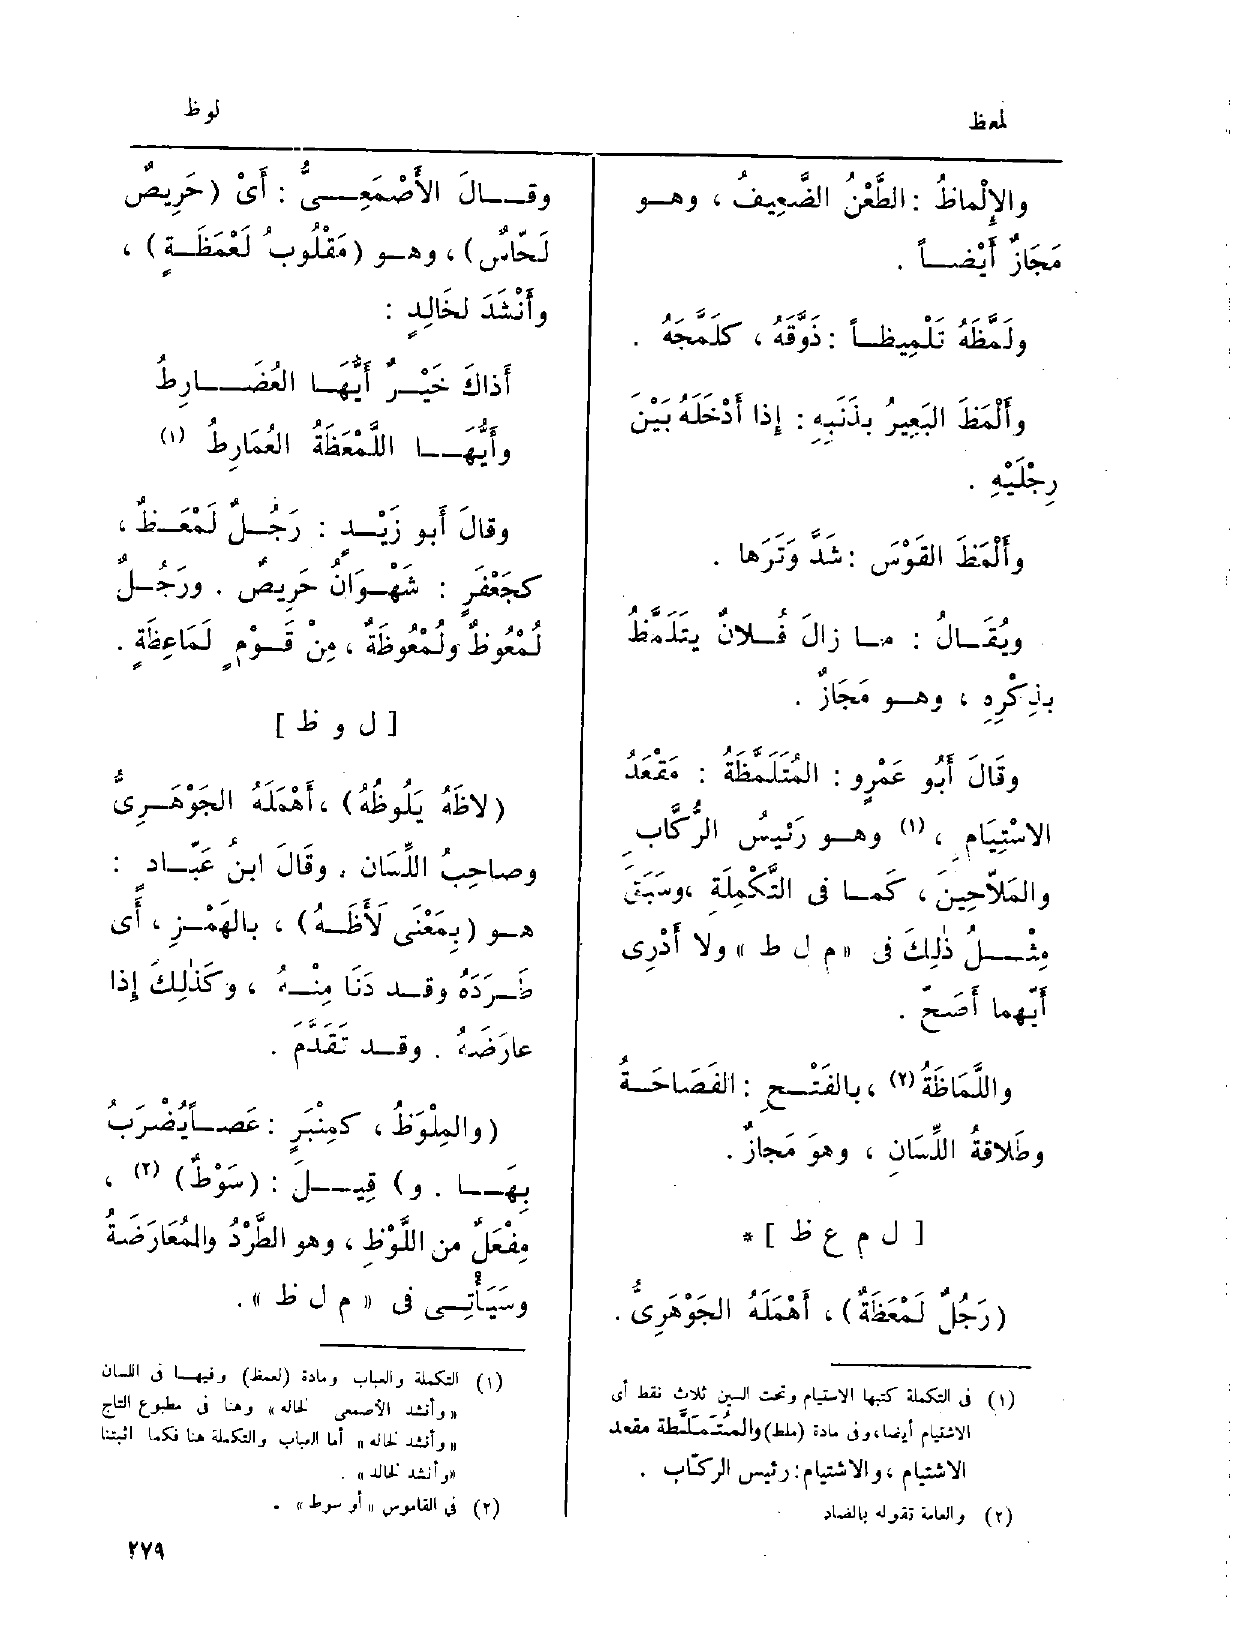 لمعظ
لوظ
والإِلْماظُ : الطَّعْنُ الضَّعِيفُ ، وهـو
مَجَازٌ أَيْضـاً .
ولَمَّظَهُ تَلْمِيظـاً : ذَوَّقَهُ ، كلَمَّجَهُ .
وأَلْمَظَ البَعِيرُ بِذَنَبِهِ : إِذا أَدْخَلَهُ بَيْنَ
رِجْلَيْهِ .
وأَلْمَظَ القَوْسَ : شَدَّ وَتَرَها .
ويُقَـالُ : مـا زالَ فُـلانٌ يَتَلَمَّظُ
بذِكْرِهِ ، وهـو مَجَازٌ .
وقَالَ أَبُو عَمْرٍو : المُتَلَمَّظَةُ : مَقْعَدُ
الاسْتِيَامِ ، (١) وهـو رَئِيسُ الرُّكَّابِ
والمَلاَّحِينَ ، كَمـا فى التَّكْمِلَةِ ، وسَبَقَ
مِثْـلُ ذٰلِكَ فى «م ل ط» ولا أَدْرِى
أَيّهما أَصَحّ .
واللَّمَاظَةُ (٢) ، بالفَتْـحِ : الفَصَاحَـةُ
وطَلاقةُ اللِّسَانِ ، وهوَ مَجازٌ .
[ ل م ع ظ ] *
(رَجُلٌ لَمْعَظَةٌ) ، أَهْمَلَهُ الجَوْهَرِىُّ .
(١) فى التكملة كتبها الاستيام وتحت السين ثلاث نقط أى
الاشتيام أيضا، وفى مادة (ملط) والمُتَمَلَّطة مقعد
الاشتيام ، والاشتيام : رئيس الركّاب .
(٢) والعامة تقوله بالضاد
وقـالَ الأَصْمَعِـىُّ : أَىْ (حَرِيصٌ
لَحّاسٌ) ، وهـو (مَقْلُوبُ لَعْمَظَـةٍ) ،
وأَنْشَدَ لخَالِدٍ :
أَذاكَ خَيْـرٌ أَيُّهـا العُضَـارِطُ
وأَيُّهـا اللَّمْعَظَةُ العُمَارِطُ (١)
وقالَ أَبو زَيْـدٍ : رَجُـلٌ لَمْعَـظٌ ،
كجَعْفَرٍ : شَهْـوَانُ حَرِيصٌ . ورَجُـلٌ
لُمْعُوظٌ ولُمْعُوظَةٌ ، مِنْ قَـوْمٍ لَمَاعِظَةٍ .
[ ل و ظ ]
(لاظَهُ يَلُوظُهُ) ، أَهْمَلَهُ الجَوْهَـرِىُّ
وصاحِبُ اللِّسَان . وقَالَ ابنُ عَبّـادٍ :
هـو (بِمَعْنَى لَأَظَـهُ) ، بالهَمْـزِ ، أَى
طَـرَدَهُ وقـد دَنَا مِنْـهُ ، وكَذٰلِكَ إِذا
عارَضَهُ . وقـد تَقَدَّمَ .
(والمِلْوَظُ ، كمِنْبَرٍ : عَصـاً يُضْرَبُ
بِهَـا . و) قِيـلَ : (سَوْطٌ) (٢) ،
مِفْعَلٌ من اللَّوْظِ ، وهو الطَّرْدُ والمُعَارَضَةُ
وسَيَأْتِـى فى «م ل ظ» .
(١) التكملة والعباب ومادة (لعمظ) وفيهـا فى اللسان
«وأنشد الأصمعى لخاله» وهنا فى مطبوع التاج
«وأنشد لخاله» أما العباب والتكملة هنا فكما اثبتنا
«وأنشد لخالد» .
(٢) فى القاموس «أو سوط» .
٢٧٩